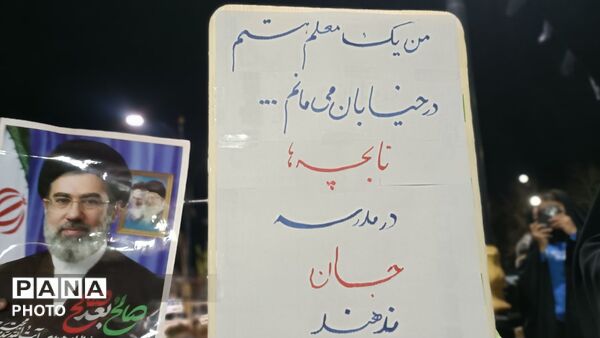 من یک معلم هستم
در خیابان می مانم ...
تا بچه ها
در مدرسه
جان
ندهند
PANA
PHOTO
صالح بعد صالح